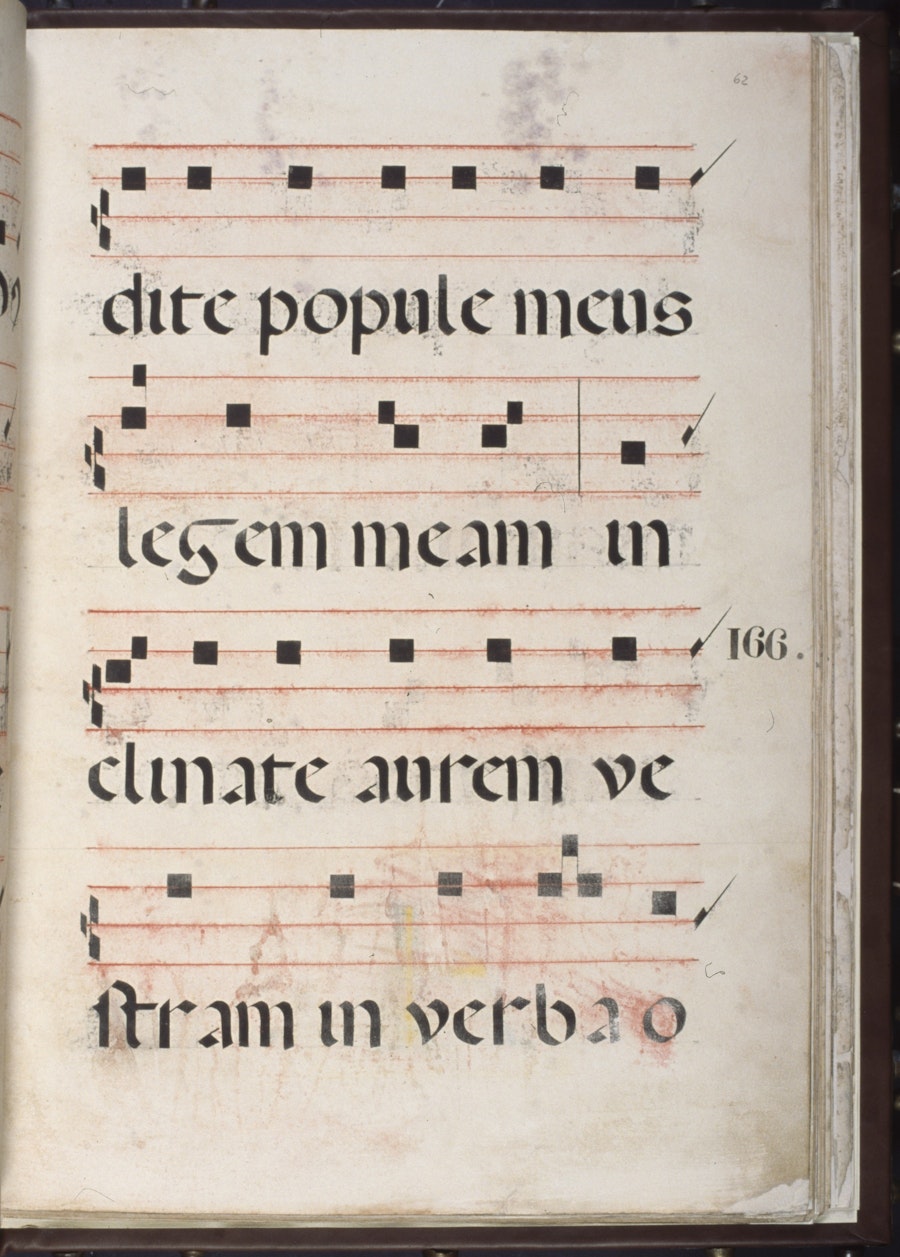 62
dite popule meus
legem meam in
clinate aurem ve
166.
stram in verba o